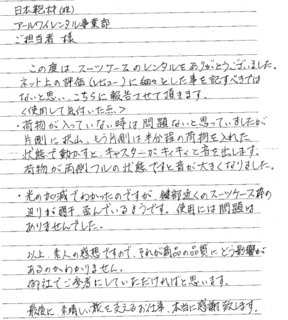 日本範材(株)
アールワイレンタル事業部
ご担当者 様
この度は、スーツケースのレンタルをありがとうございました。
ネット上の評価(レビュー)に細々とした事を記すべきでは
ないと思い、こちらに報告させて頂きます。
<使用して気付いた点>
・荷物が入っていない時は問題ないと思っていましたが
片側に沢山、もう片側は半分程の荷物を入れた
状態で動かすと、キャスターがキィキィと音を出します。
荷物が両側フルの状態ですと音が大きくなりました。
・光の加減でわかったのですが、鍵部近くのスーツケース枠の
辺りが若干、歪んでいるようです。使用には問題は
ありませんでした。
以上、素人の感想ですので、それが商品の品質にどう影響が
あるのかわかりません。
御社でご参考にしていただければと思います。
最後に、素晴しい旅を支えるお仕事、本当に感謝致します。